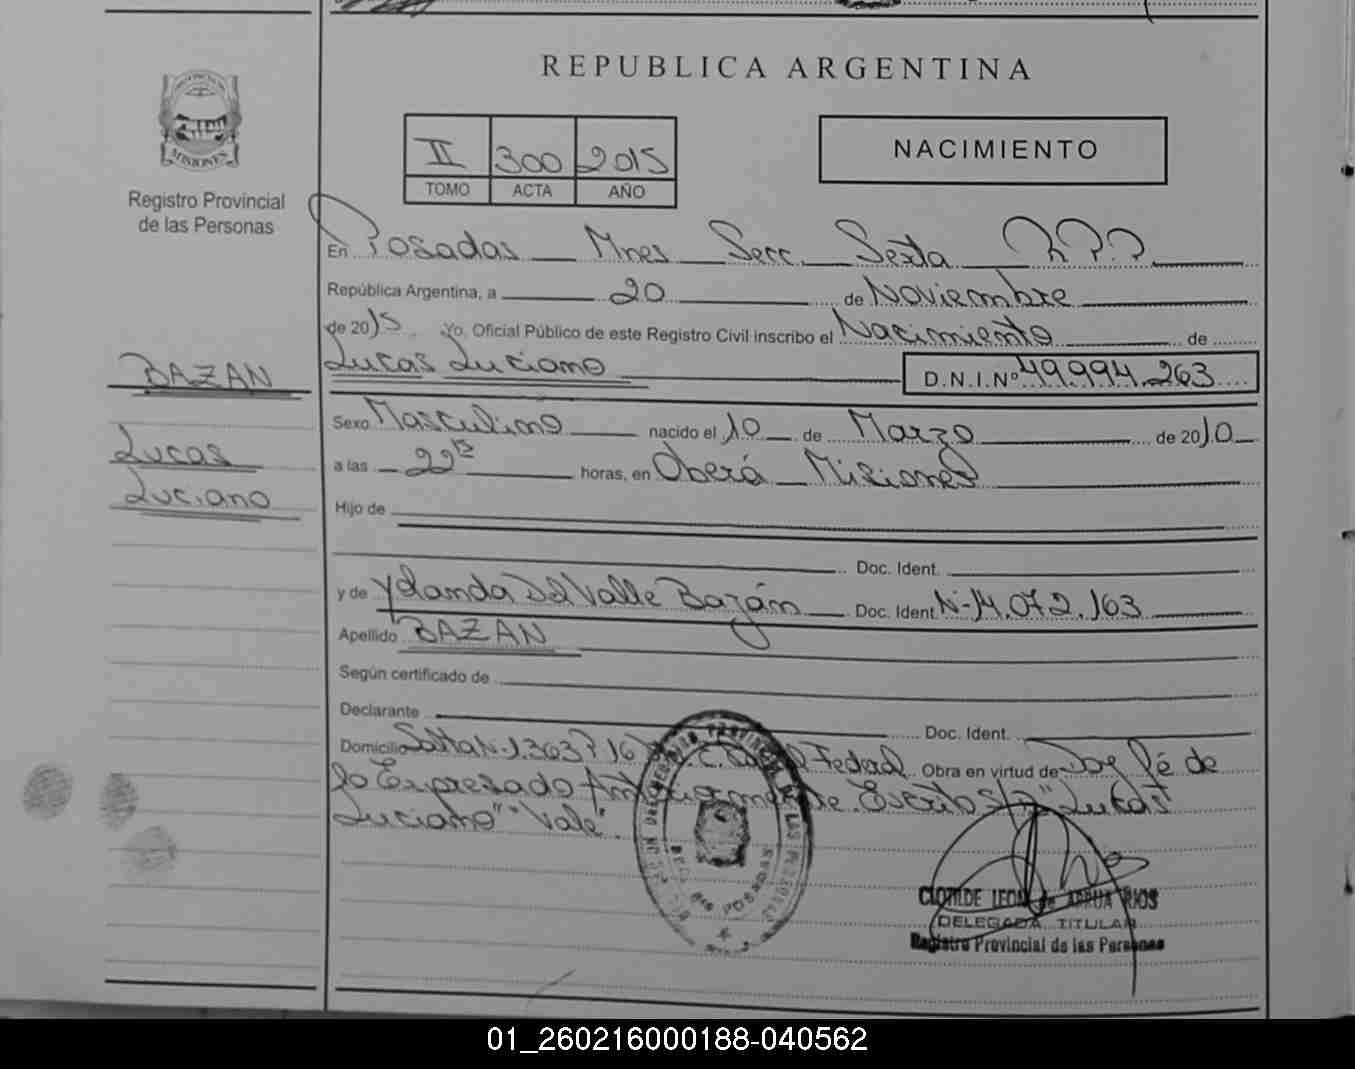 REPUBLICA ARGENTINA
MISIONES
Registro Provincial
de las Personas
II 300 2015
TOMO ACTA AÑO
NACIMIENTO
En Posadas Mnes Secc. Sexta R.P.P
República Argentina, a 20 de Noviembre
de 2015 Yo, Oficial Público de este Registro Civil inscribo el Nacimiento de
Lucas Luciano D.N.I.Nº 49.994.263
BAZAN
Lucas
Luciano
Sexo Masculino nacido el 10 de Marzo de 2010
a las 22 15 horas, en Oberá Misiones
Hijo de
Doc. Ident.
y de Yolanda Del Valle Bazán Doc. Ident. Nº 14.072.163
Apellido BAZAN
Según certificado de
Declarante Doc. Ident.
Domicilio Salta Nº 1363 Federal Obra en virtud de Doy fé de
lo Expresado Escrito "Lucas
Luciano" "Vale".
POSADAS
CLOTILDE LEON de ARRUA RIOS
DELEGADA TITULAR
Registro Provincial de las Personas
01_260216000188-040562